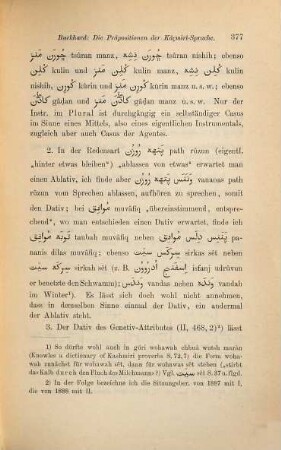 Burkhard: Die Präpositionen der Kāçmīrī-Sprache. 377
چورن منز tsūran manz, چورن نشہ tsūran nishih; ebenso
کلین منز kulin manz und کلین نشہ kulin
nishih, ebenso کارین kārin und kārin manz u. s. w. und
کاڈن gāḍan und گاڈن منز gāḍan manz u. s. w. Nur der
Instr. im Plural ist durchgängig ein selbständiger Casus
im Sinne eines Mittels, also eines eigentlichen Instrumentals,
zugleich aber auch Casus des Agentes.
2. In der Redensart پتھ روزن path rūzun (eigentl.
„hinter etwas bleiben“) „ablassen von etwas“ erwartet man
einen Ablativ, ich finde aber ونـنس پتھ روزن vananas path
rūzun vom Sprechen ablassen, aufhören zu sprechen, somit
den Dativ; bei موافق muvāfiq „übereinstimmend, entspre-
chend“, wo man entschieden einen Dativ erwartet, finde ich
توبہ موافق taubah muvāfiq neben پننس دلس موافق pa-
nanis dilas muvāfiq; ebenso سرکس سیت sirkas sēt neben
سرکہ سیت sirkah sēt (z. B. اسفنج ادروون isfanj udrūvun
er benetzte den Schwamm); وندس vandas neben وندہ vandah
im Winter¹). Es lässt sich doch wohl nicht annehmen,
dass in demselben Sinne einmal der Dativ, ein andermal
der Ablativ steht.
3. Der Dativ des Genetiv-Attributes (II, 468, 2)²) liest
1) So dürfte wohl auch in gūri wohawah chhunā wotsh marān
(Knowles a dictionary of Kashmiri proverbs S. 72, 7) die Form woha-
wah zunächst für wohawah sēt, dann für wohawas sēt stehen („stirbt
das Kalb durch den Fluch des Milchmanns“?) Vgl. سیت sēt S. 87 a. flgd.
2) In der Folge bezeichne ich die Sitzungsber. von 1887 mit I,
die von 1888 mit II.